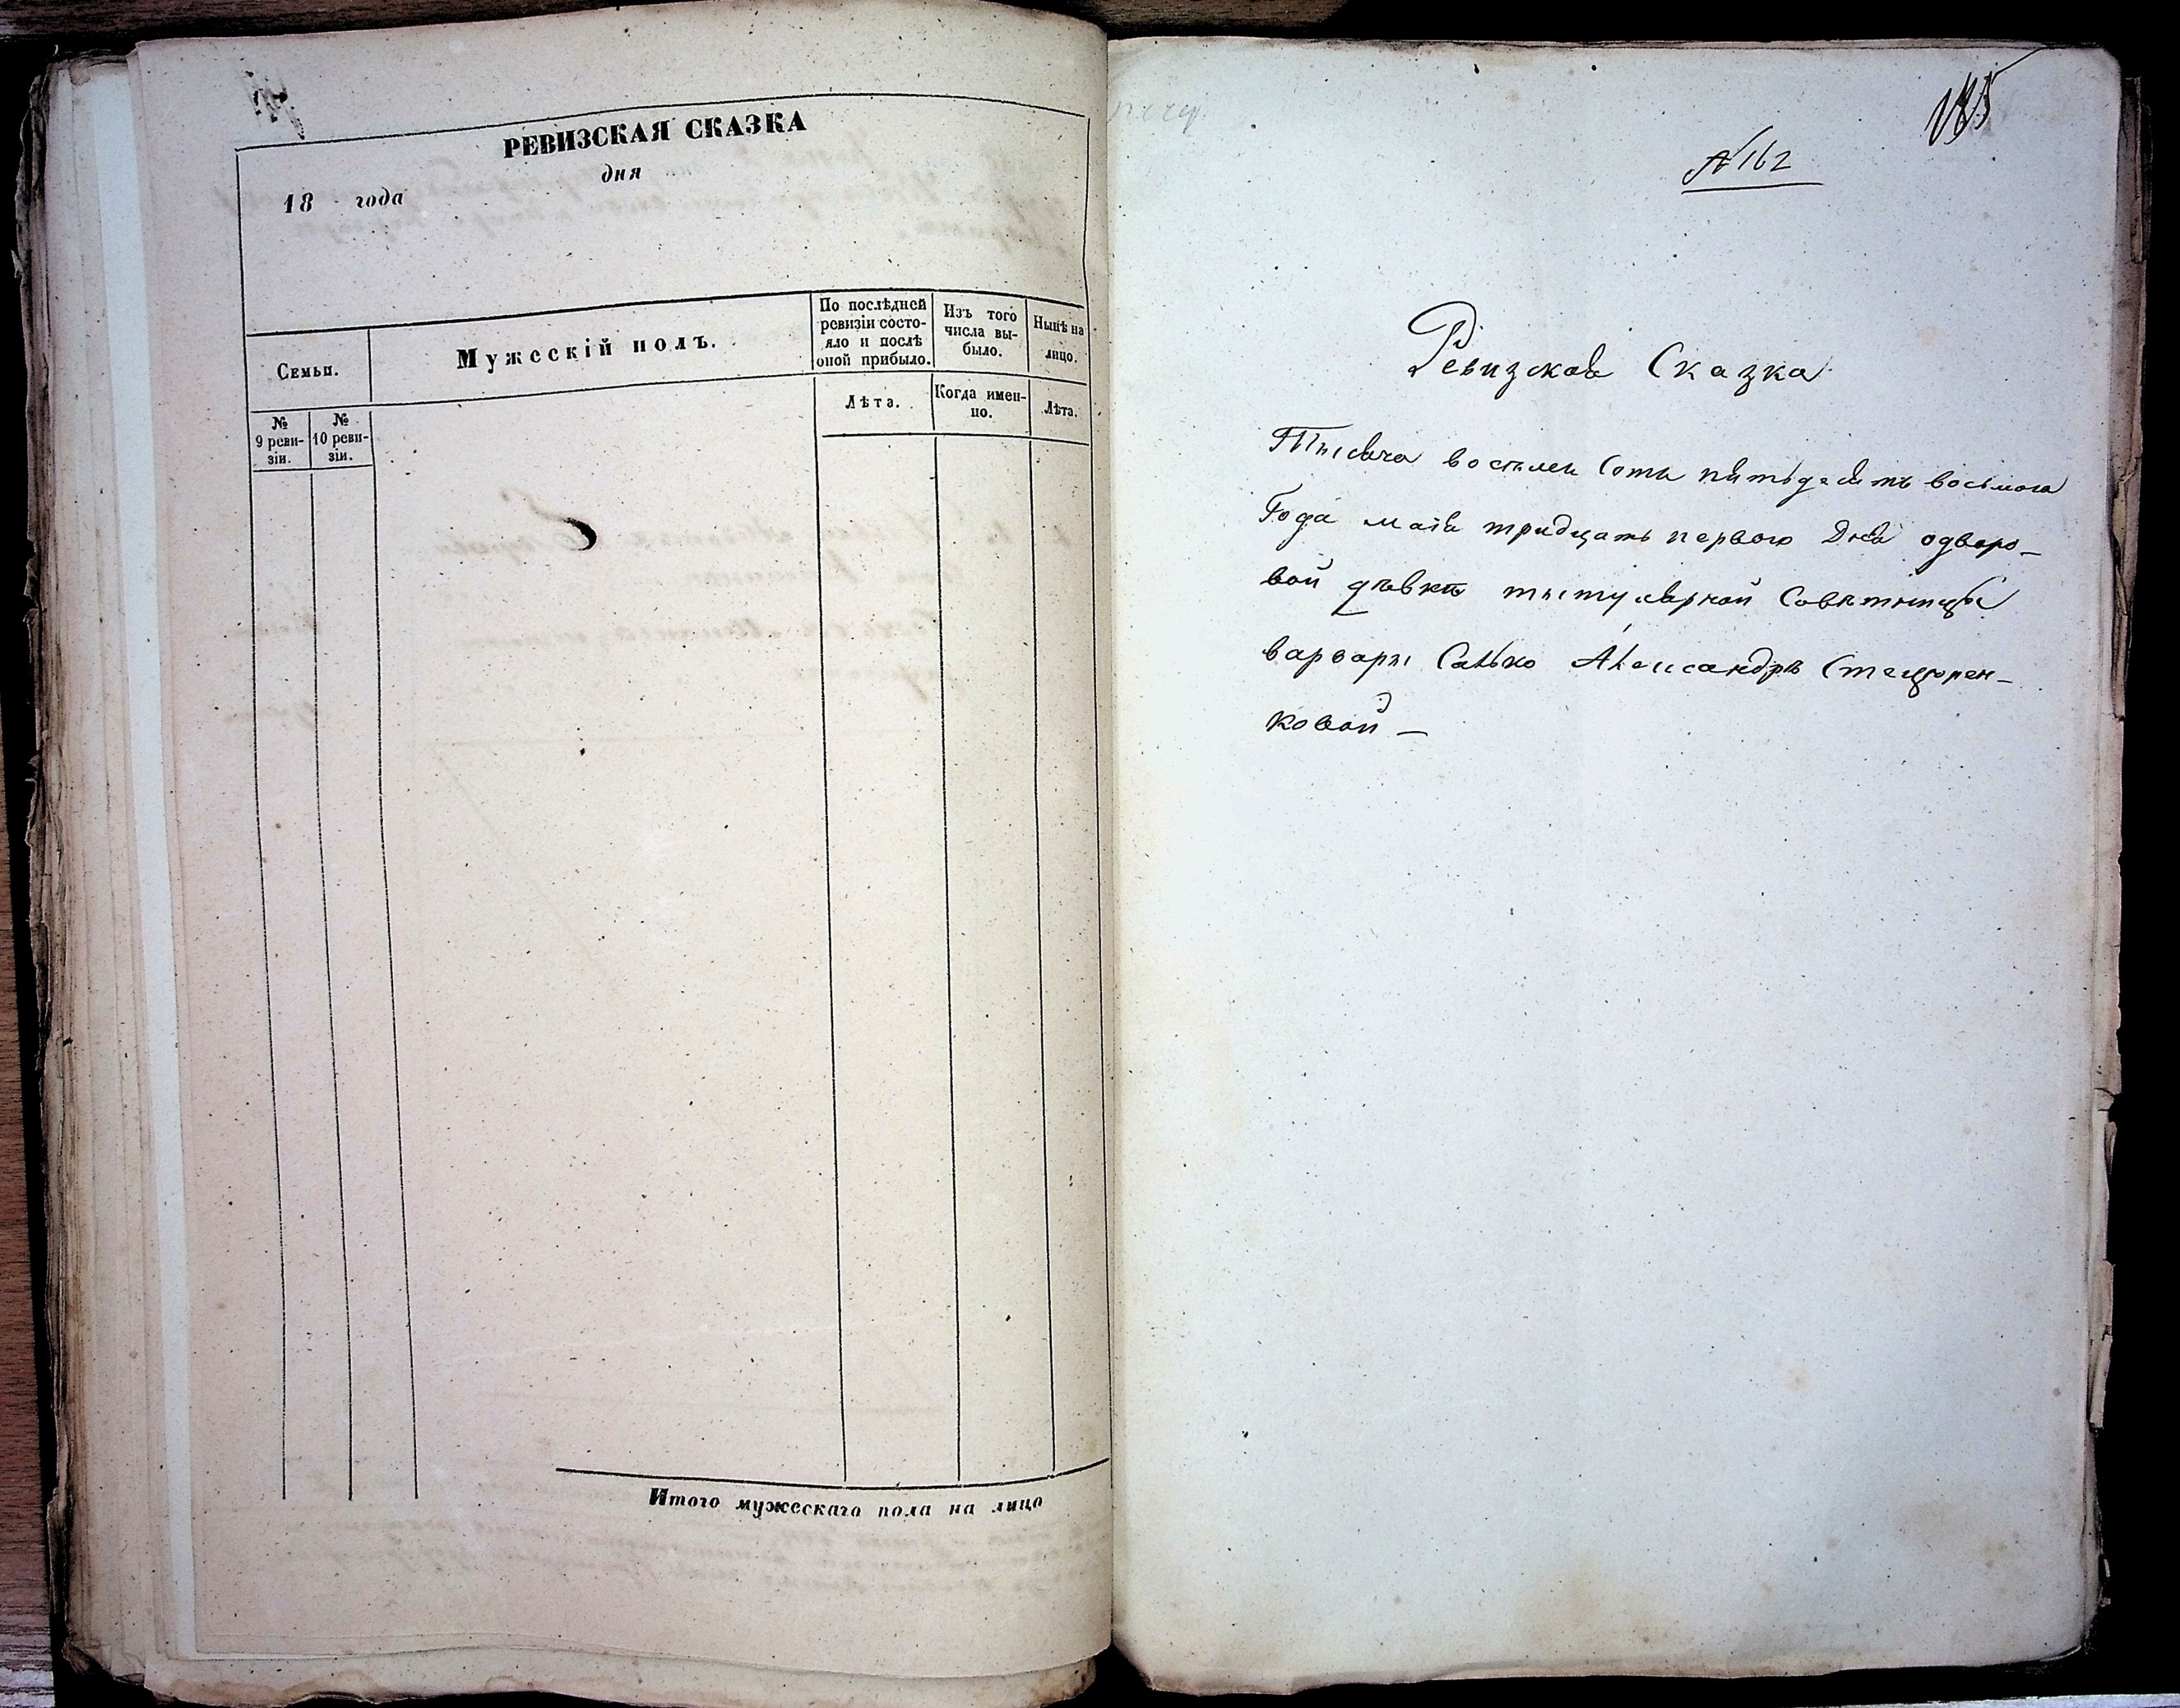 РЕВИЗСКАЯ СКАЗКА
дня
18 года
Семьи.
Мужескій полъ.
По послѣдней ревизіи состо-
яло и послѣ оной прибыло.
Изъ того числа вы-
было.
Нынѣ на лицо.
№ 9 реви-
зіи.
№ 10 реви-
зіи.
Лѣта.
Когда имен-
но.
Лѣта.
Итого мужескаго пола на лицо
185
№ 162
Ревизская Сказка
Тысяча восемь Сотъ пятьдесятъ восьмога
Года маія тридцать первого Дня одворо-
вой дѣвкѣ тытулярной Совѣтницы
варвары Сатько Александрѣ Стецюрен-
ковой —